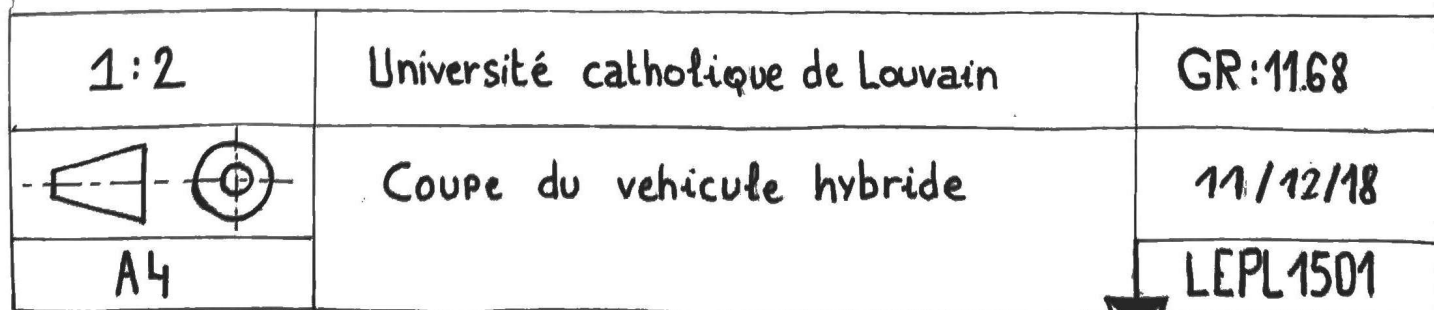 1:2
Université catholique de Louvain
GR:11.68
Coupe du vehicule hybride
11/12/18
A4
LEPL1501